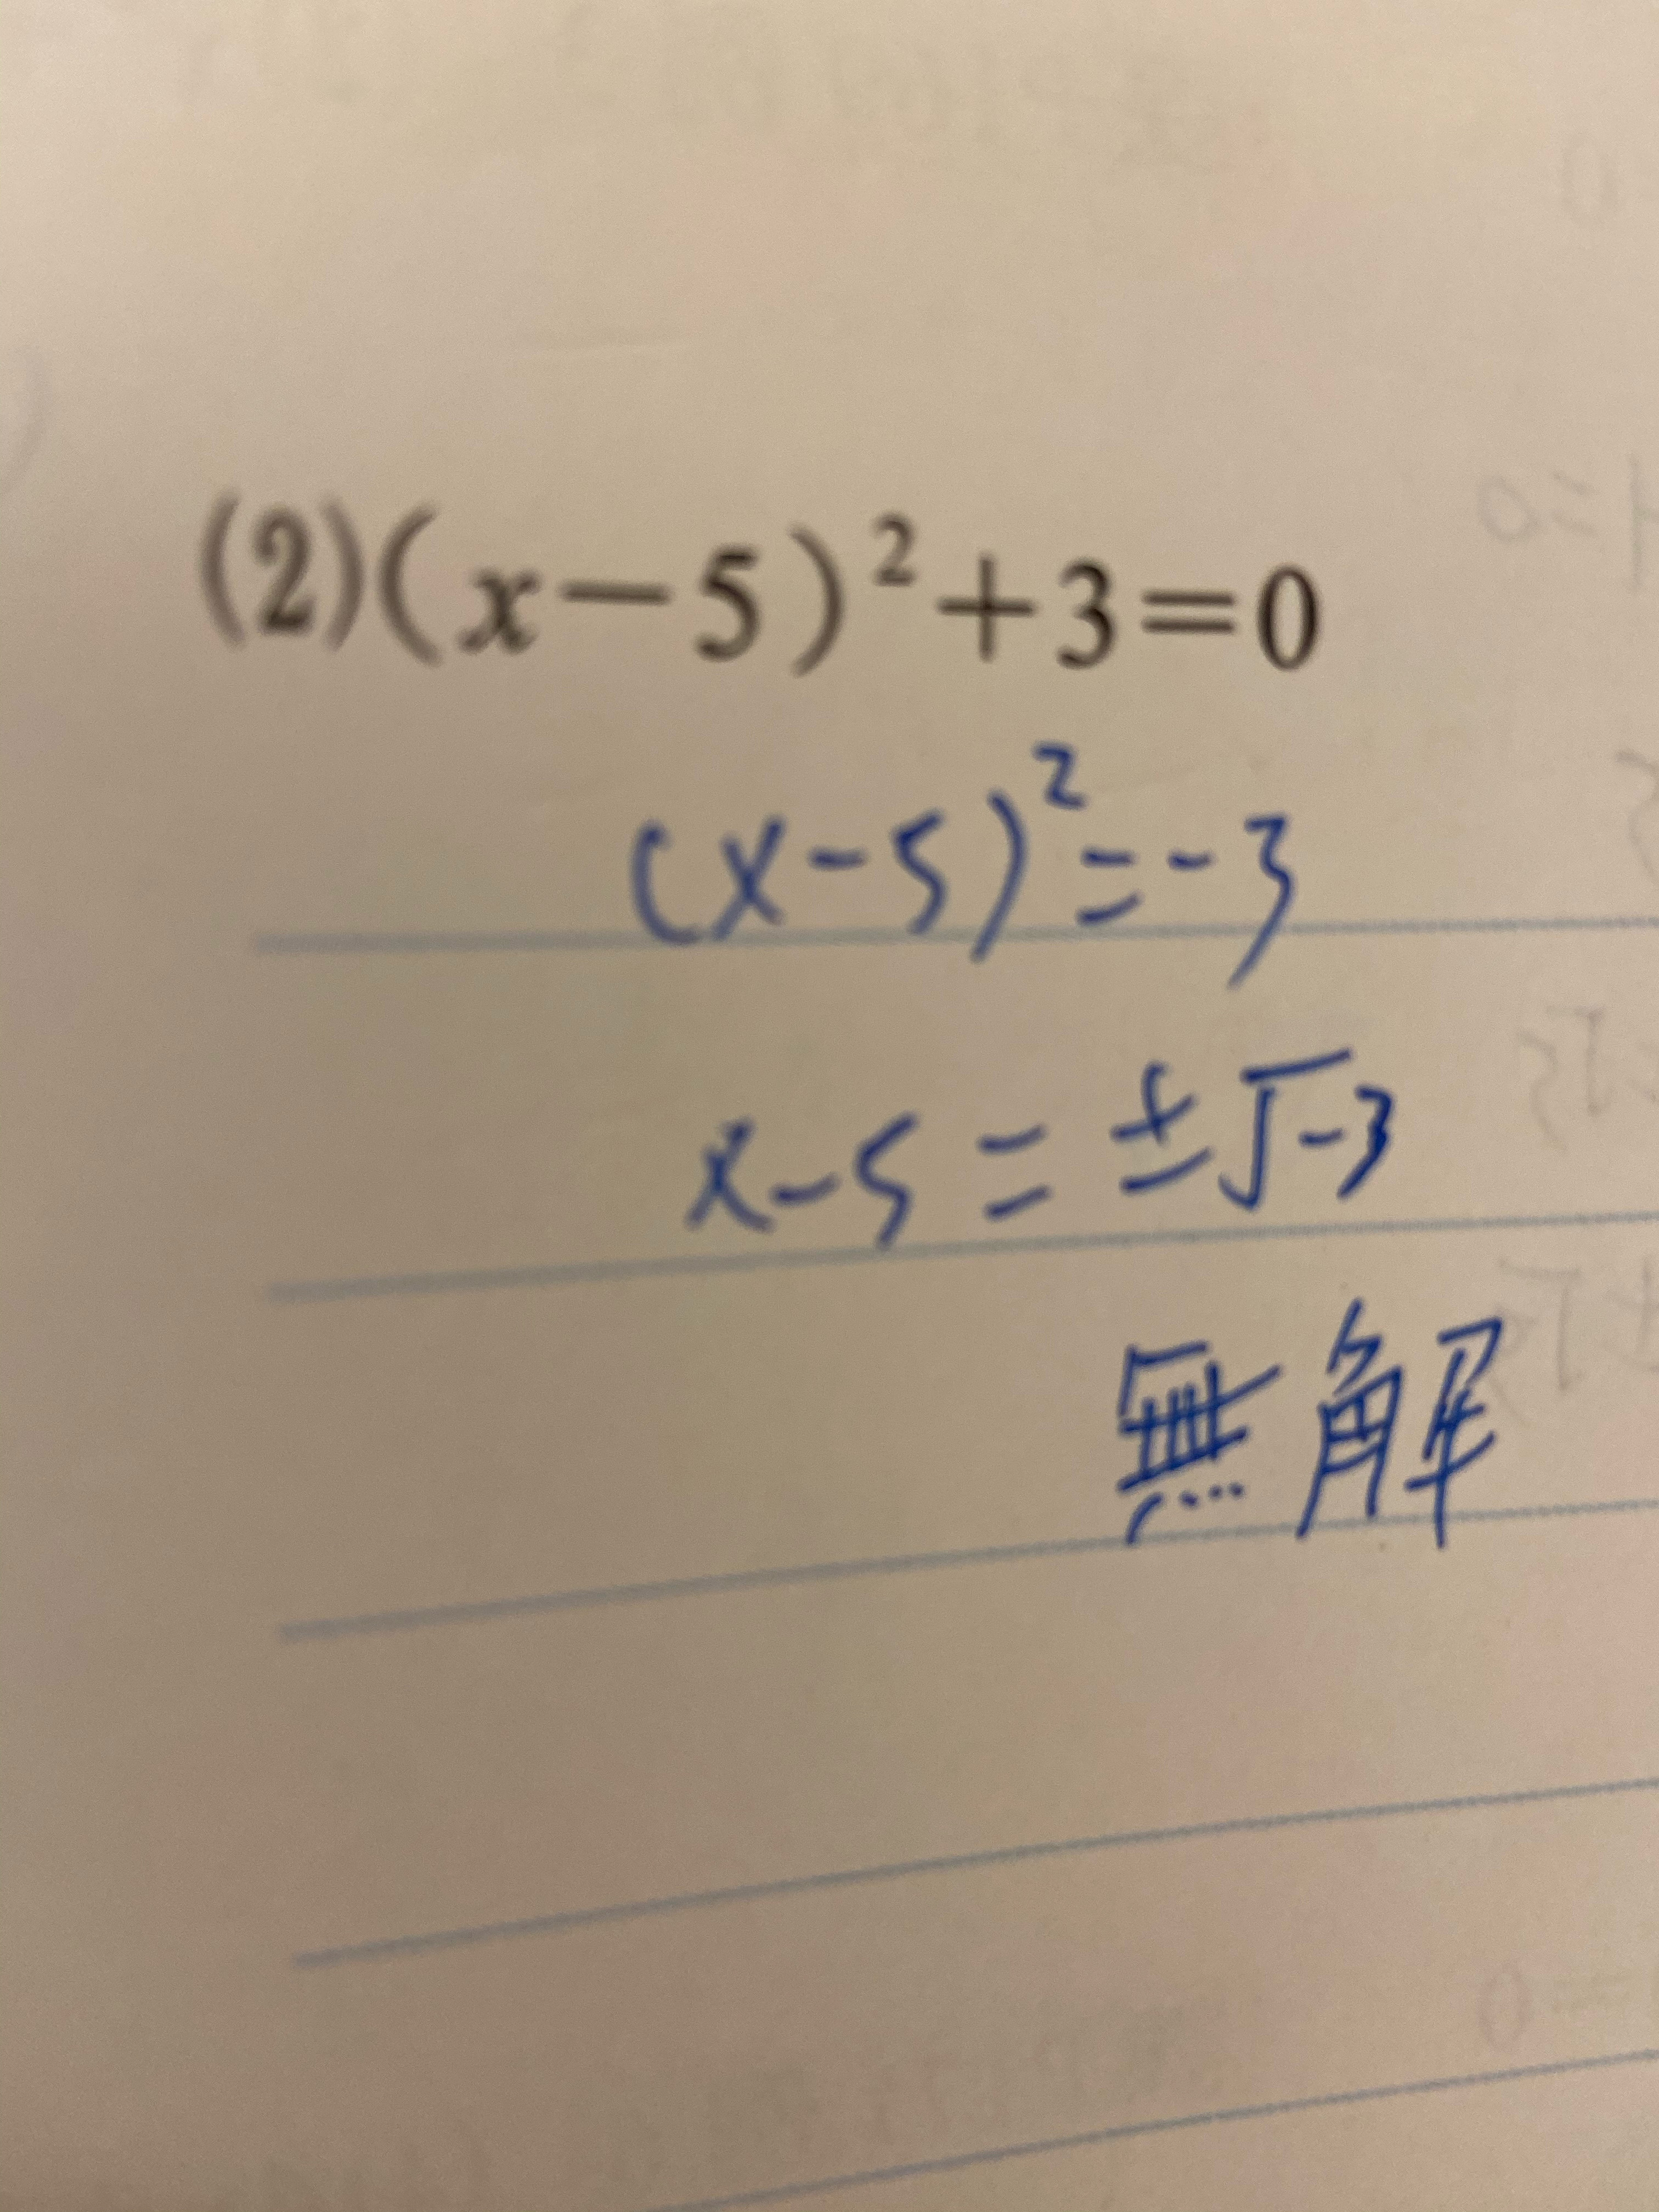 (2)(x−5)²+3=0
(x-5)²=-3
x-5=±√-3
無解